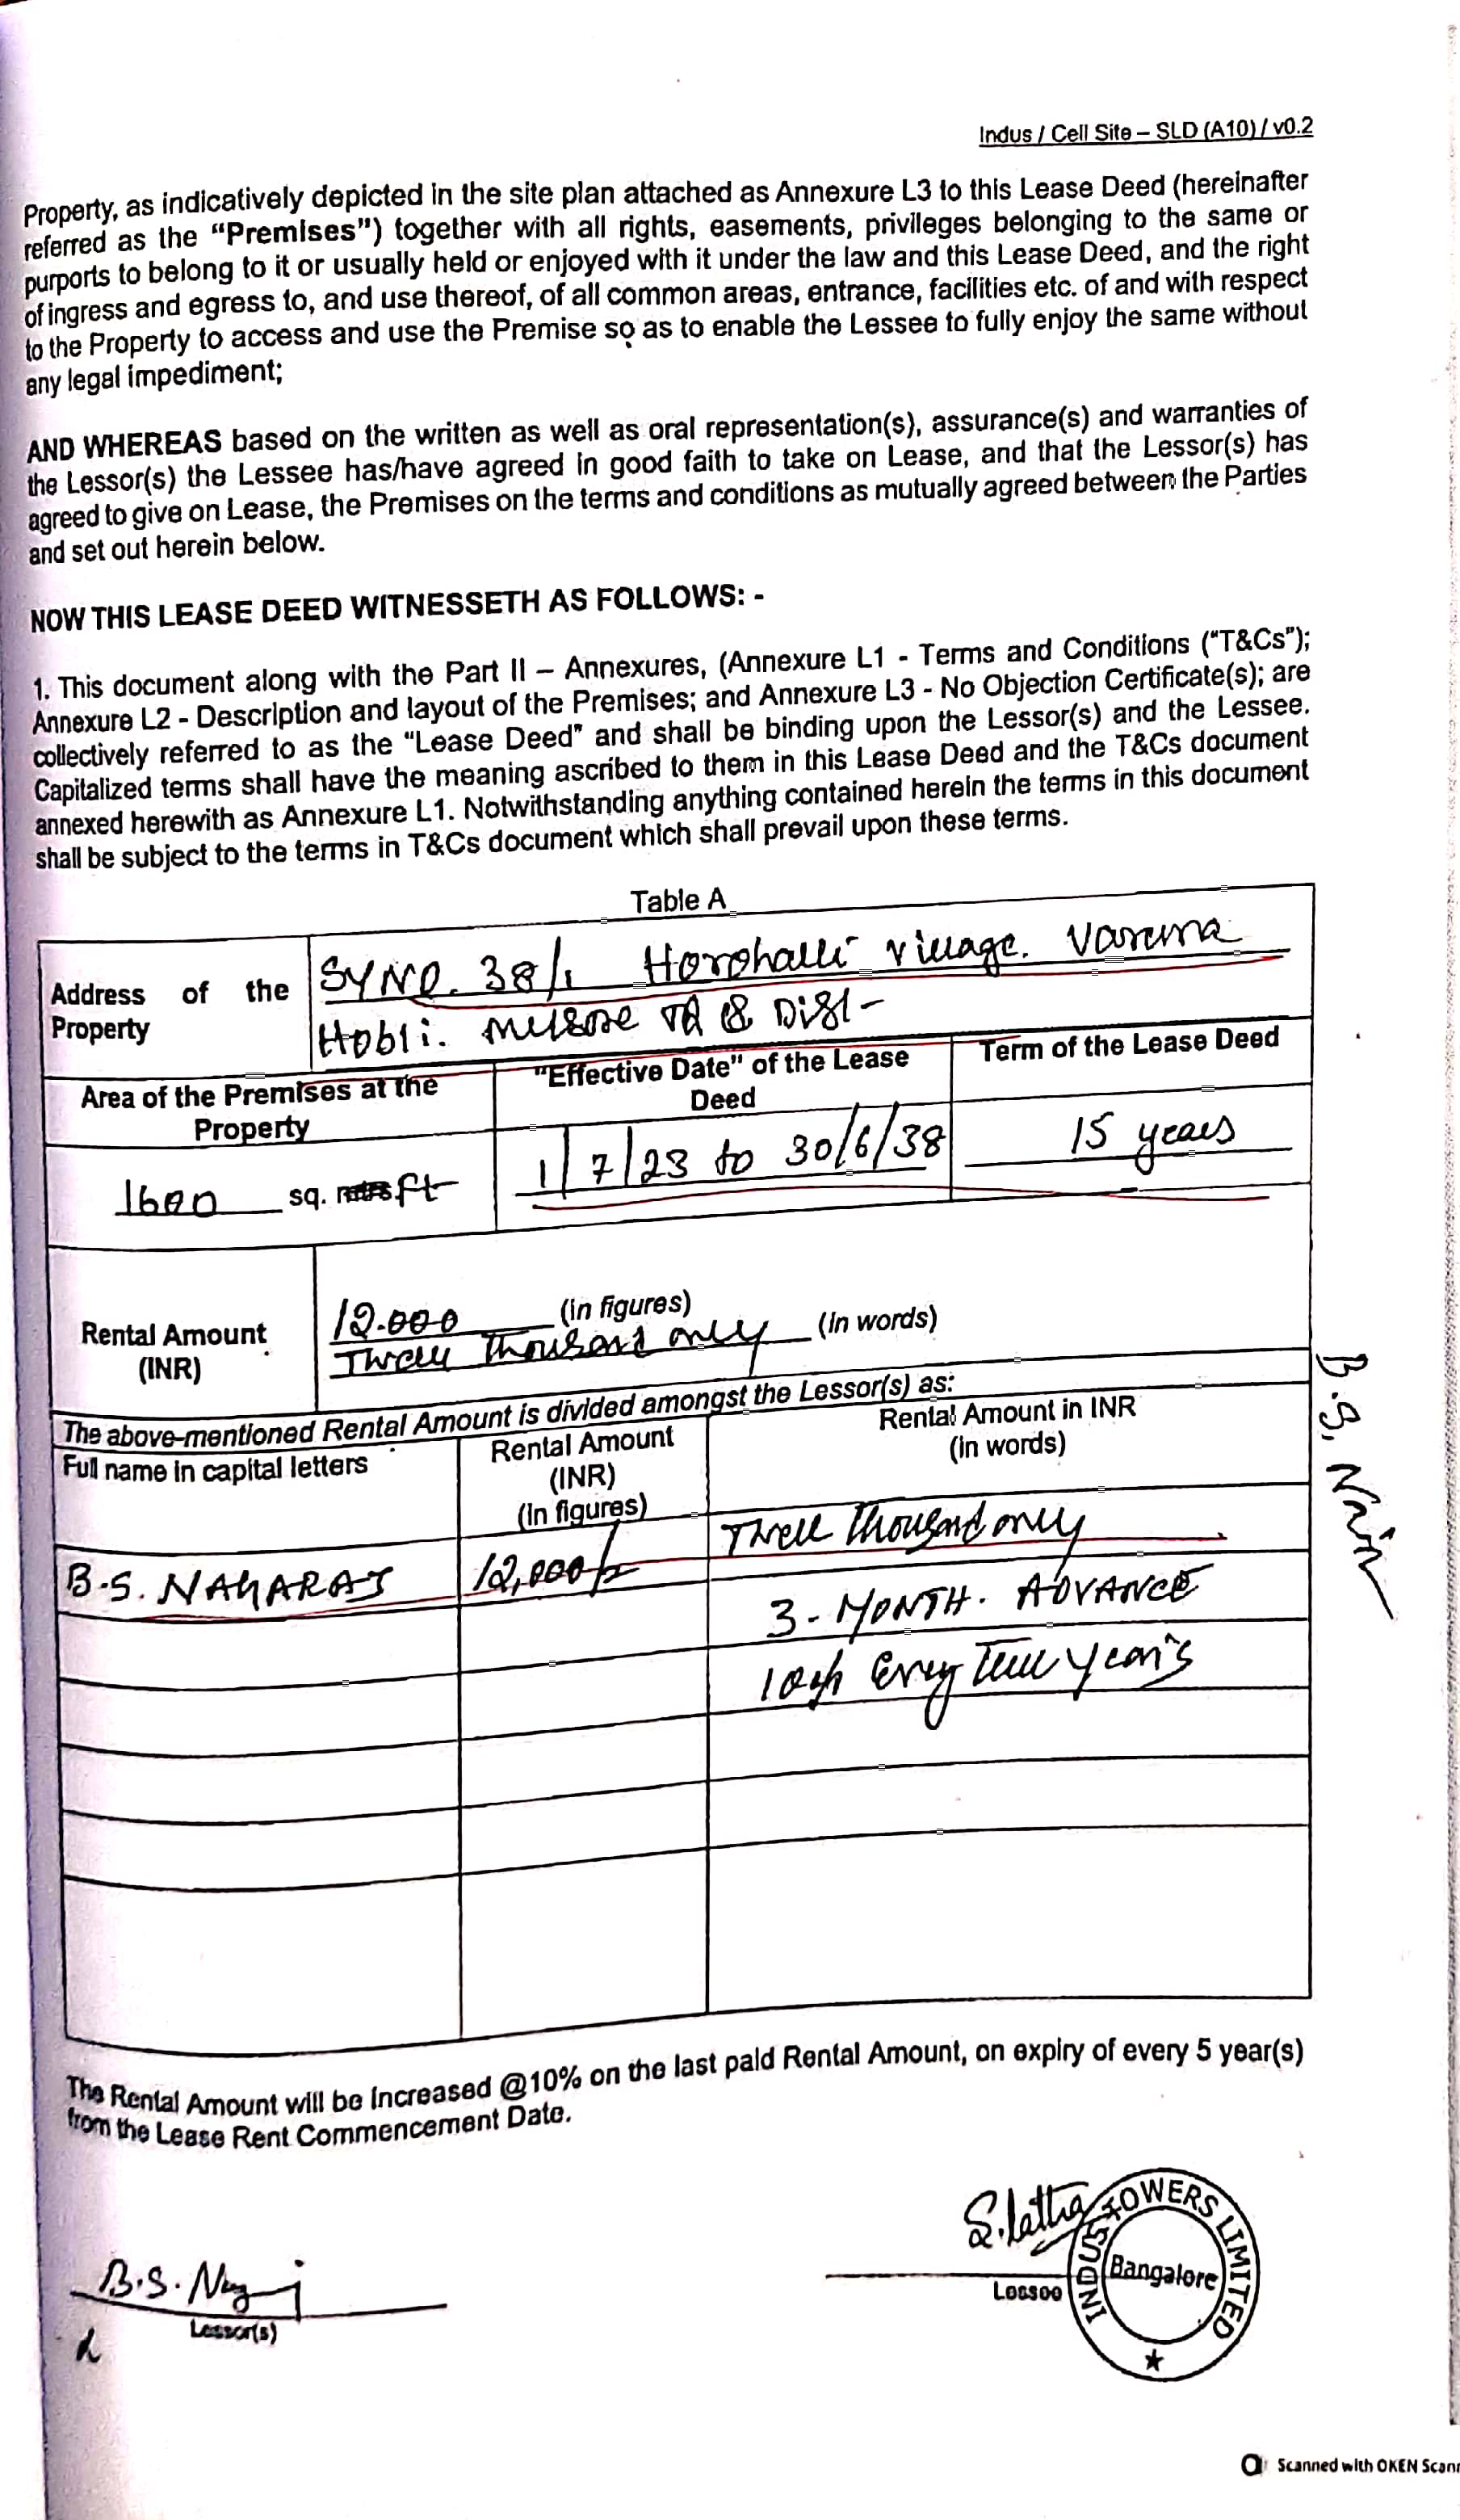 Indus / Cell Site – SLD (A10) / v0.2
Property, as indicatively depicted in the site plan attached as Annexure L3 to this Lease Deed (hereinafter
referred as the “Premises”) together with all rights, easements, privileges belonging to the same or
purports to belong to it or usually held or enjoyed with it under the law and this Lease Deed, and the right
of ingress and egress to, and use thereof, of all common areas, entrance, facilities etc. of and with respect
to the Property to access and use the Premise so as to enable the Lessee to fully enjoy the same without
any legal impediment;
AND WHEREAS based on the written as well as oral representation(s), assurance(s) and warranties of
the Lessor(s) the Lessee has/have agreed in good faith to take on Lease, and that the Lessor(s) has
agreed to give on Lease, the Premises on the terms and conditions as mutually agreed between the Parties
and set out herein below.
NOW THIS LEASE DEED WITNESSETH AS FOLLOWS: -
1. This document along with the Part II – Annexures, (Annexure L1 - Terms and Conditions (“T&Cs”);
Annexure L2 - Description and layout of the Premises; and Annexure L3 - No Objection Certificate(s); are
collectively referred to as the “Lease Deed” and shall be binding upon the Lessor(s) and the Lessee.
Capitalized terms shall have the meaning ascribed to them in this Lease Deed and the T&Cs document
annexed herewith as Annexure L1. Notwithstanding anything contained herein the terms in this document
shall be subject to the terms in T&Cs document which shall prevail upon these terms.
Table A
Address of the
Property
SYNO. 38/1 Horohalli village. Varuna
Hobli. & Dist-
Area of the Premises at the
Property
"Effective Date" of the Lease
Deed
Term of the Lease Deed
1600 sq. ft
1/7/23 to 30/6/38
15 years
Rental Amount
(INR)
12.000 (in figures)
thousand only (In words)
The above-mentioned Rental Amount is divided amongst the Lessor(s) as:
Full name in capital letters
Rental Amount
(INR)
(In figures)
Rental Amount in INR
(in words)
B.S. NAGARAJ
12,000/-
Thousand only
3-MONTH. ADVANCE
Every year's
The Rental Amount will be increased @10% on the last paid Rental Amount, on expiry of every 5 year(s)
from the Lease Rent Commencement Date.
B.S.
Lessor(s)
Lessee
INDUS TOWERS LIMITED
Bangalore
B.S.
Scanned with OKEN Scann